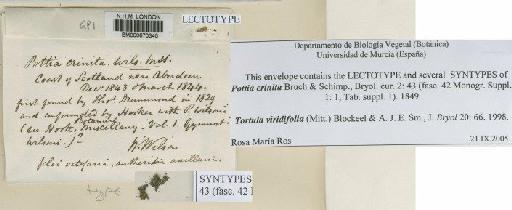 N.H.M. LONDON
LECTOTYPE
Pottia crinita Wils. Mst.
Coast of Scotland near Aberdeen
Decr 1843 & March 1844.
first found by Thos Drummond in 1829
and confounded by Hooker with P. Wilsoni
(in Hook. Botanical Miscellany. Vol. 1. Gymnost.
Wilsoni)
W. Wilson
Departamento de Biología Vegetal (Botánica)
Universidad de Murcia (España)
This envelope contains the LECTOTYPE and several SYNTYPES of
Pottia crinita Bruch & Schimp., Bryol. eur. 2: 43 (fasc. 42 Monogr. Suppl.
1: 1, Tab. suppl. 1). 1849
Tortula viridifolia (Mitt.) Blockeel & A. J. E. Sm., J. Bryol 20: 66. 1998.
Rosa María Ros
21.IX.2005
SYNTYPES
43 (fasc. 42